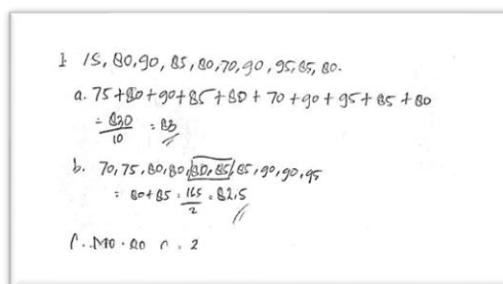 1 75, 80, 90, 85, 80, 70, 90, 95, 85, 80.
a. 75+80+90+85+80+70+90+95+85+80
= 830/10 = 83
b. 70, 75, 80, 80, 80, 85, 85, 90, 90, 95
= 80+85 = 165/2 = 82,5